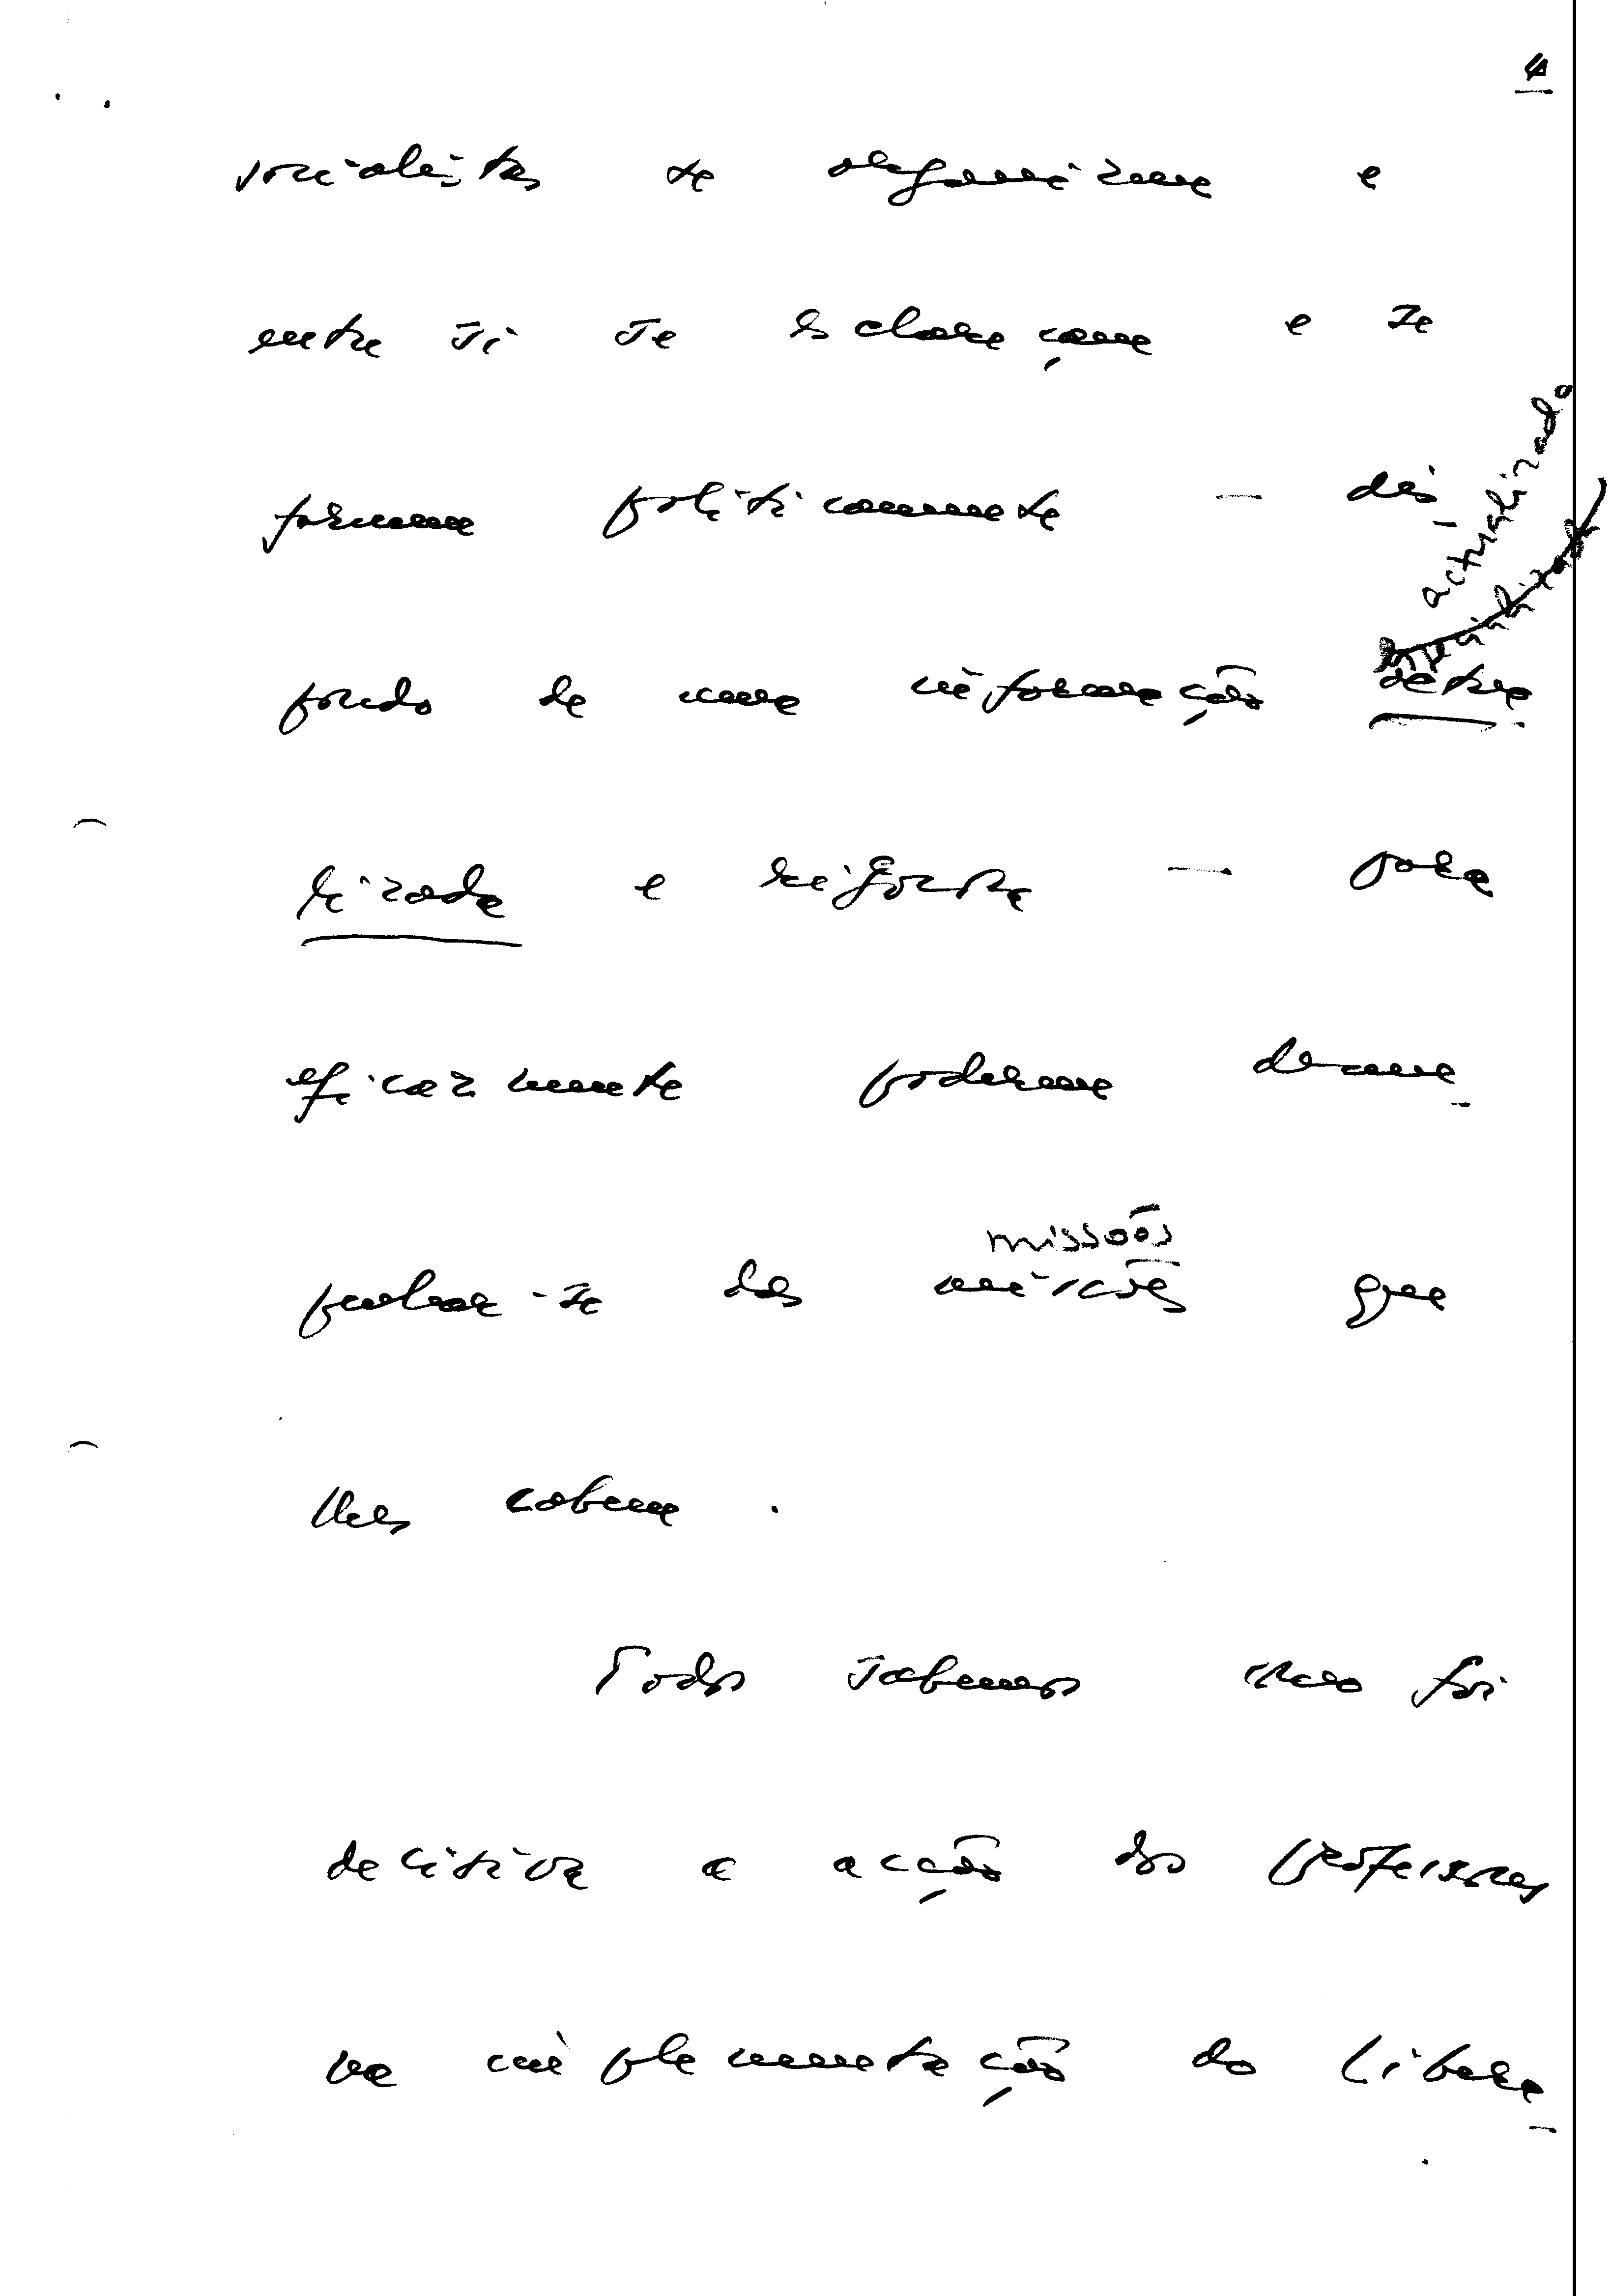 4
socialistas se organizem e
entre si se esclareçam e se
formem politicamente — dis-
actualizada
pondo de uma informação actua
lizada e rigorosa — para
eficazmente poderem desem-
missões
penhar-se das missões que
lhes cabem.
Todos sabemos como foi
decisiva a acção dos professores
na implementação do libera-